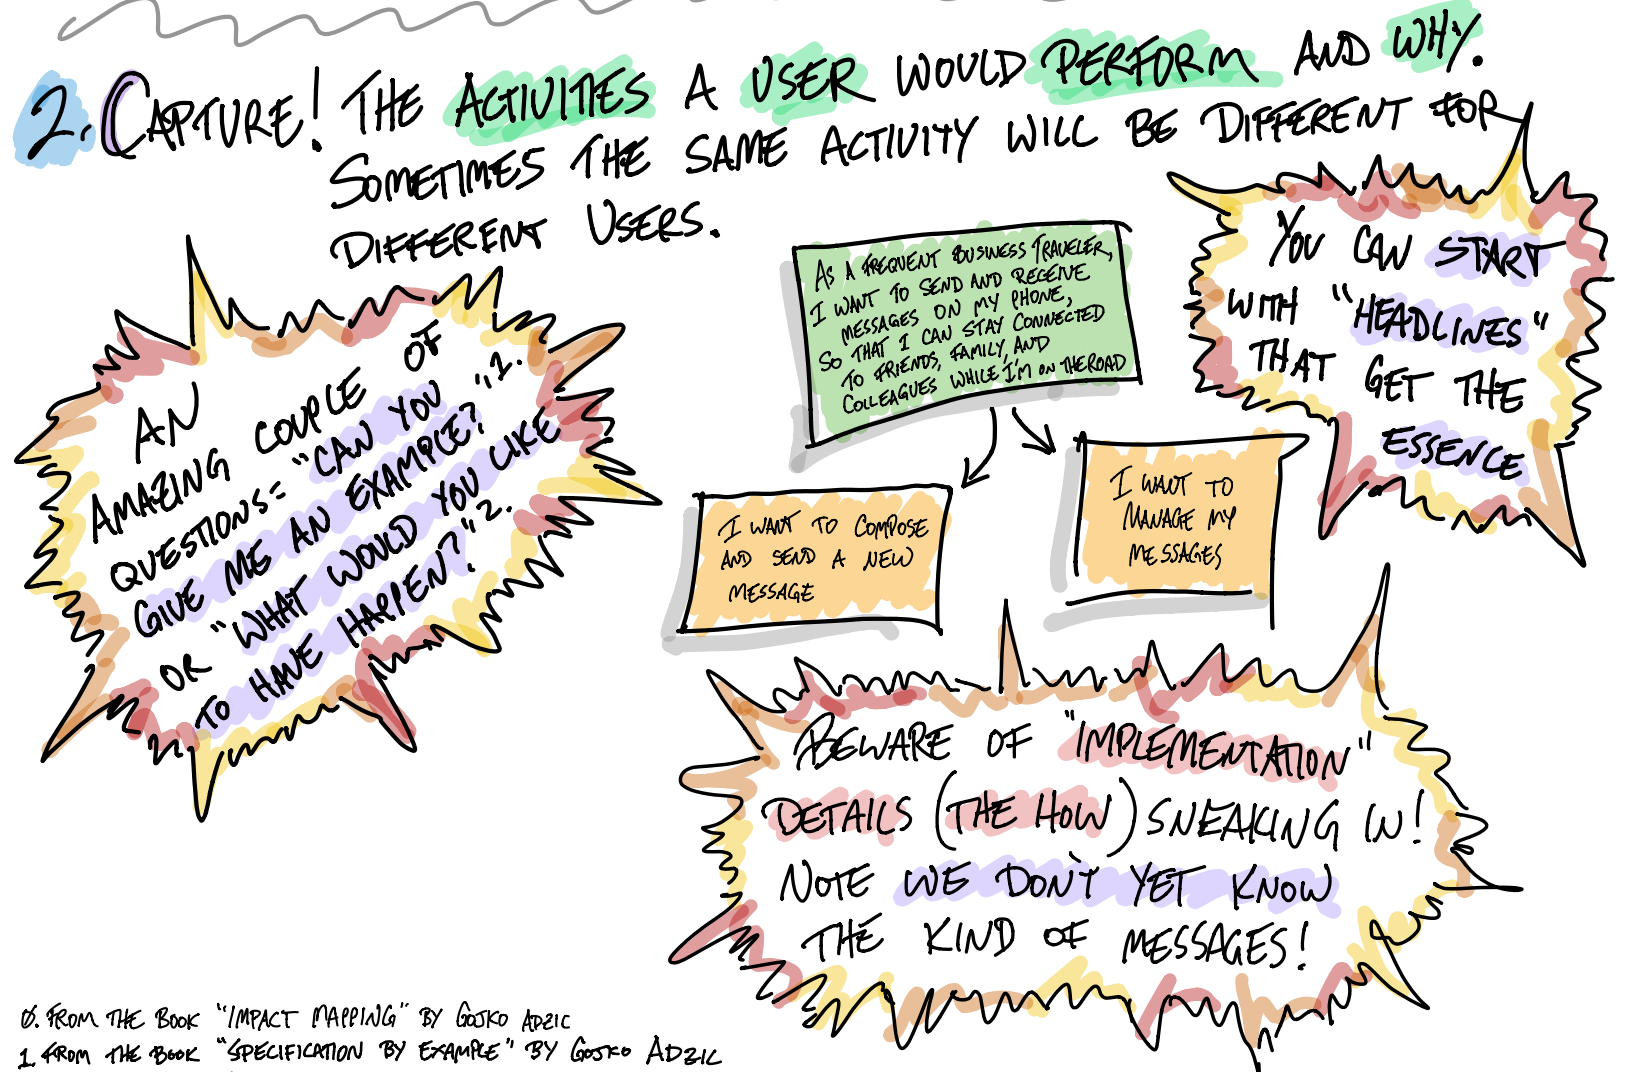 2. CAPTURE! THE ACTIVITIES A USER WOULD PERFORM AND WHY.
SOMETIMES THE SAME ACTIVITY WILL BE DIFFERENT FOR
DIFFERENT USERS.
AN
AMAZING COUPLE OF
QUESTIONS = "CAN YOU
GIVE ME AN EXAMPLE?",1.
OR "WHAT WOULD YOU LIKE
TO HAVE HAPPEN?"2.
AS A FREQUENT BUSINESS TRAVELER,
I WANT TO SEND AND RECEIVE
MESSAGES ON MY PHONE,
SO THAT I CAN STAY CONNECTED
TO FRIENDS, FAMILY, AND
COLLEAGUES WHILE I'M ON THE ROAD
I WANT TO COMPOSE
AND SEND A NEW
MESSAGE
I WANT TO
MANAGE MY
MESSAGES
YOU CAN START
WITH "HEADLINES"
THAT GET THE
ESSENCE
BEWARE OF "IMPLEMENTATION"
DETAILS (THE HOW) SNEAKING IN!
NOTE WE DON'T YET KNOW
THE KIND OF MESSAGES!
0. FROM THE BOOK "IMPACT MAPPING" BY GOJKO ADZIC
1. FROM THE BOOK "SPECIFICATION BY EXAMPLE" BY GOJKO ADZIC